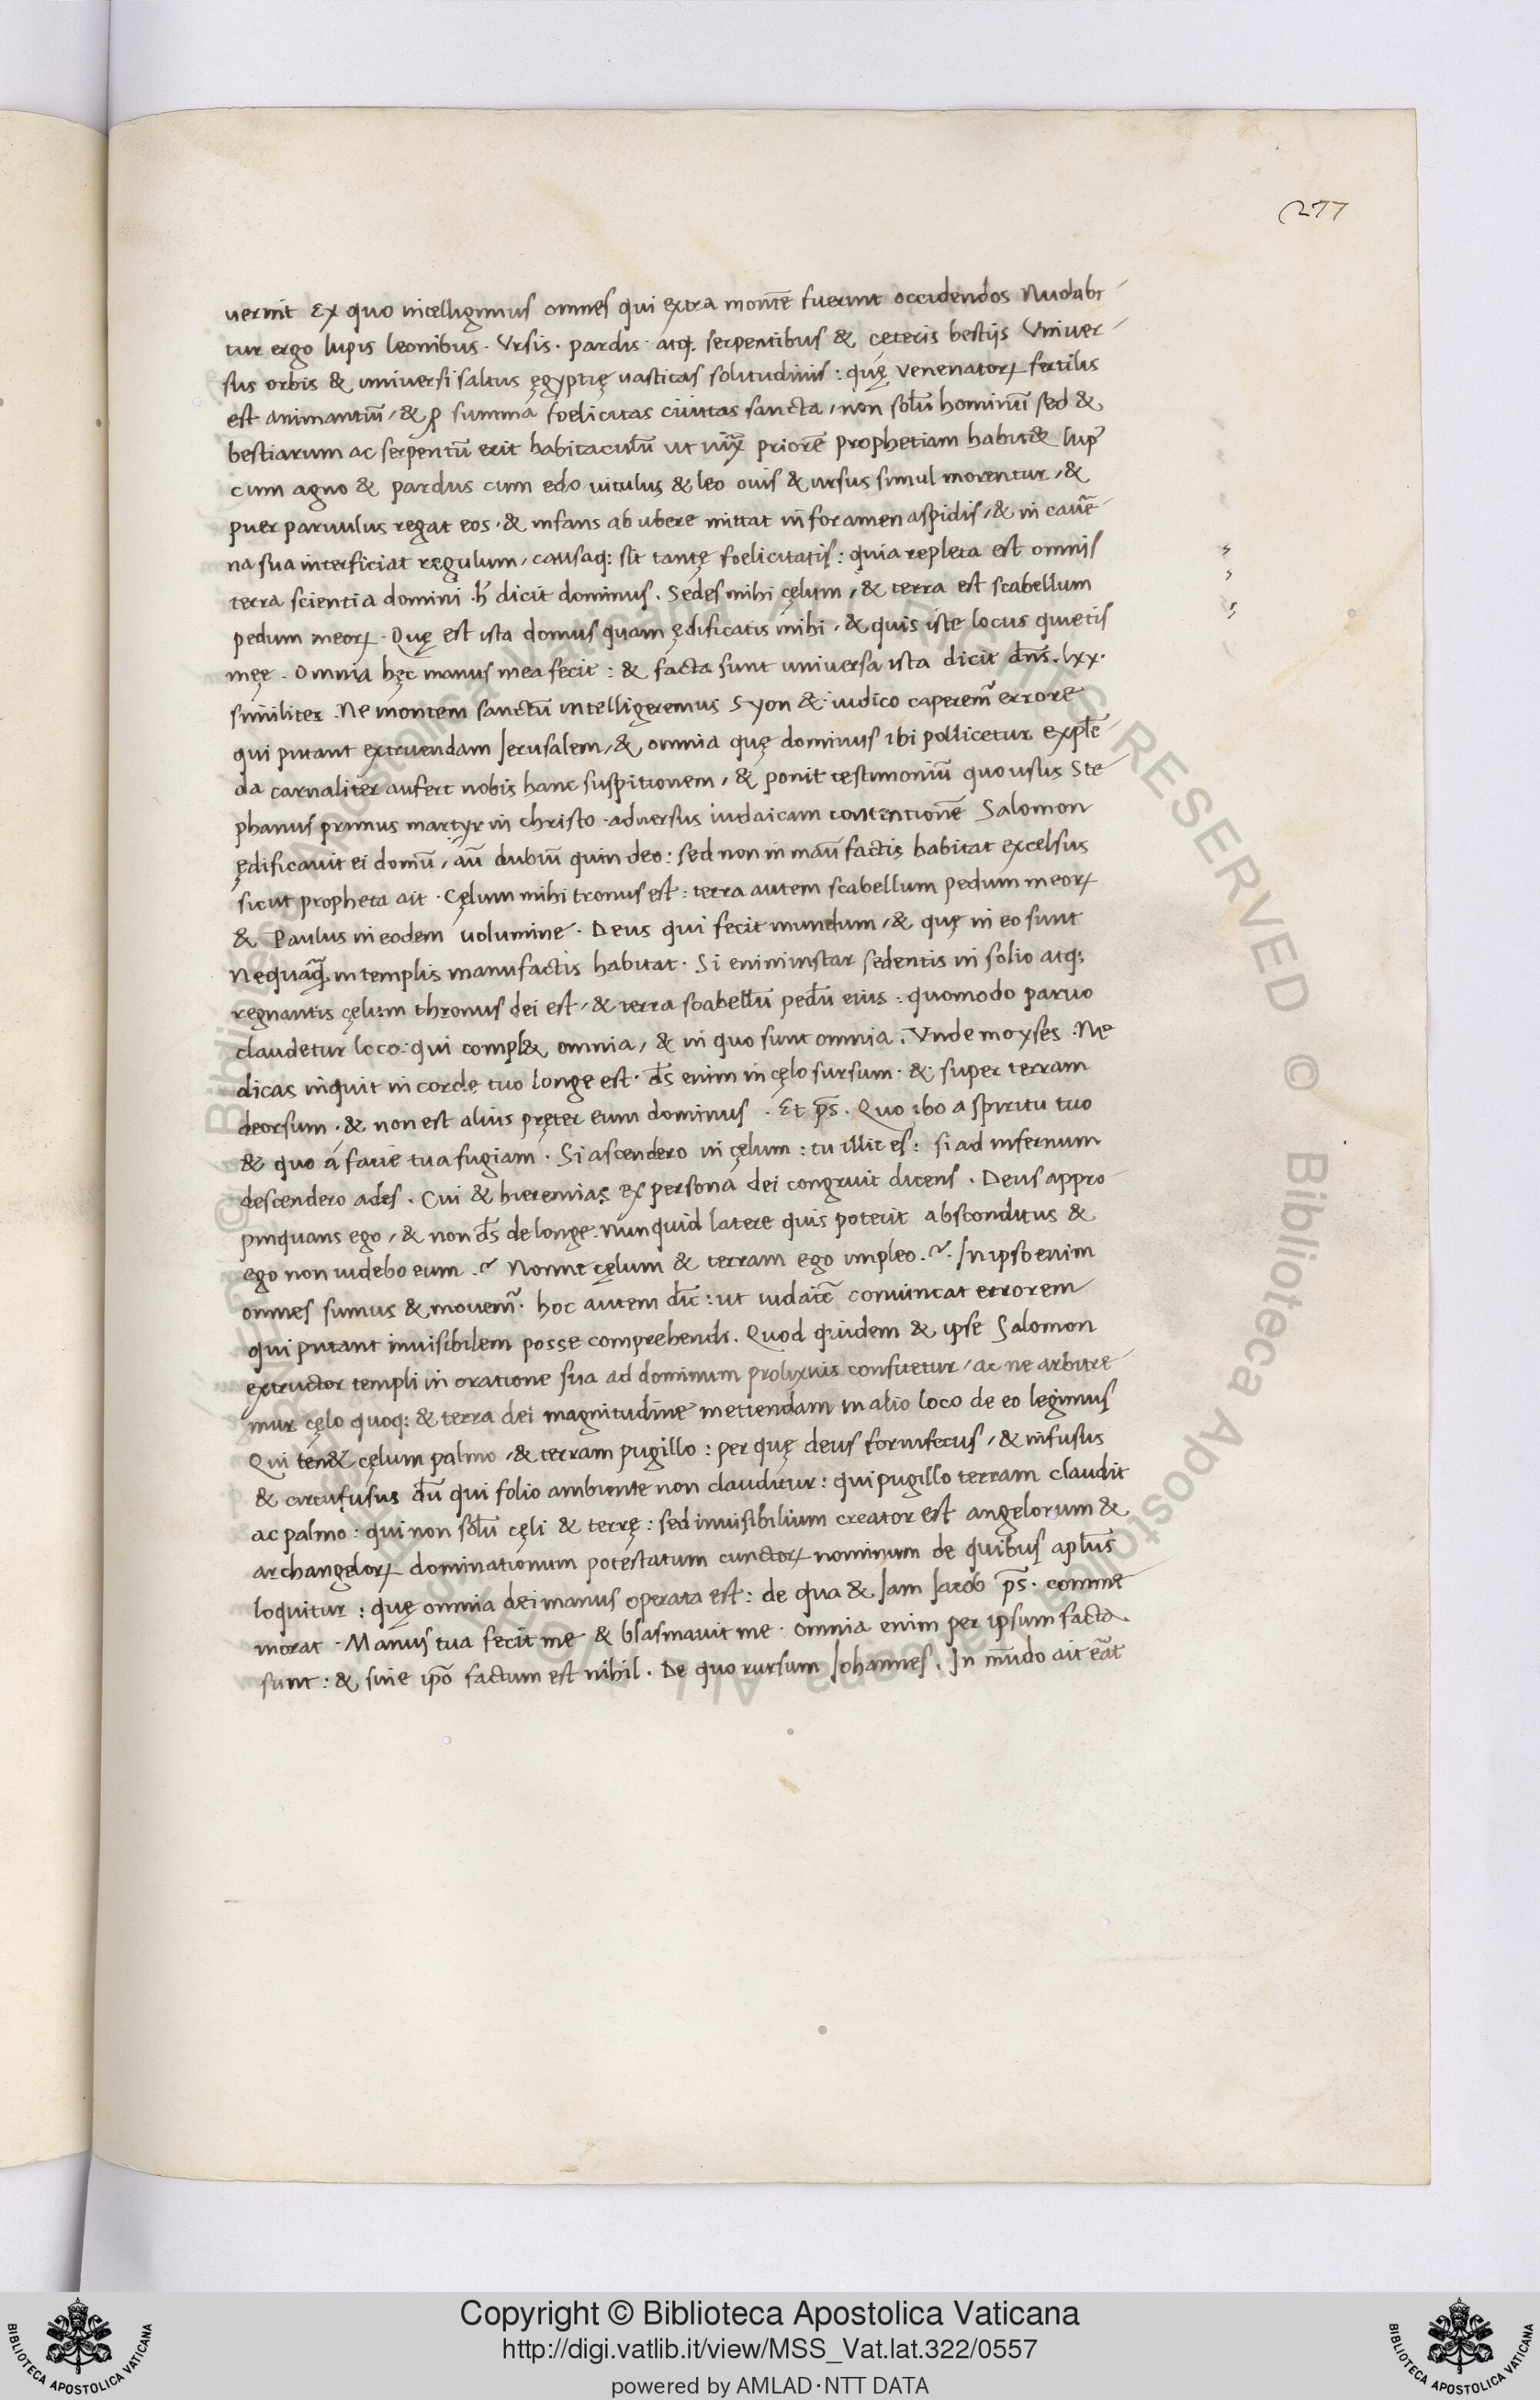 277
uerint Ex quo intelligimus omnes qui extra montē fuerint occidendos Nudabi
tur ergo lupis leonibus · Ursis · pardis · atq. serpentibus & cęteris bestijs Univer
sus orbis & universi saltus ęgyptię uasticas solitudinis : quę venenatoꝝ fertilis
est animantiū , & ꝓ summa foelicitas ciuitas sancta , non solū hominū sed &
bestiarum ac serpentū erit habitaculū ut priorē prophetiam habit& lup᾽
cum agno & pardus cum edo uitulus & leo ouis & ursus simul morentur , &
puer paruulus regat eos · & infans ab ubere mittat in foramen aspidis , & in cauē
na sua interficiat regulum , causaq: sit tantę foelicitatis : quia repleta est omnis
terra scientia domini . h᾽ dicit dominus . Sedes mihi cęlum , & terra est scabellum
pedum meoꝝ . Quę est ista domus quam ędificatis mihi , & quis iste locus quietis
męę . Omnia hęc manus mea fecit : & facta sunt universa ista dicit dn̄s . lxx .
similiter . Ne montem sanctū intelligeremus Syon & iudico caperem᾽ errore
qui putant extruendam Jerusalem , & omnia quę dominus ibi pollicetur explē
da carnaliter aufert nobis hanc suspitionem , & ponit testimoniū quo usus Ste
phanus primus martyr in christo . adversus iudaicam contentionē Salomon
ędificauit ei domū , aū dubiū quin deo : sed non in manū factis habitat excelsus
sicut propheta ait . Cęlum mihi tronus est : terra autem scabellum pedum meoꝝ
& Paulus in eodem uolumine . Deus qui fecit mundum , & quę in eo sunt
Nequaq̄ in templis manufactis habitat . Si enim instar sedentis in solio atq:
regnantis cęlum thronus dei est , & terra scabellū pedū eius : quomodo paruo
claudetur loco : qui compl& omnia , & in quo sunt omnia . Unde moyses . Ne
dicas inquit in corde tuo longe est . d̄s enim in cęlo sursum . & super terram
deorsum . & non est alius pręter eum dominus . Et p̄s . Quo ibo a spiritu tuo
& quo a facie tua fugiam . Si ascendero in cęlum : tu illic es : si ad infernum
descendero ades . Cui & hieremias ex persona dei congruit dicens . Deus appro
pinquans ego , & non d̄s de longe . nunquid latere quis poterit absconditus &
ego non uidebo eum .? Nonne cęlum & terram ego impleo .? In ipso enim
omnes sumus & movem᾽ . hoc autem dīc : ut iudaicē convincat errorem
qui putant inuisibilem posse comprehendi . Quod quidem & ipse Salomon
extructor templi in oratione sua ad dominum prolixius confitetur , ac ne arbitre
mur cęlo quoq: & terra dei magnitudine metiendam in alio loco de eo legimus
Qui ten& cęlum palmo , & terram pugillo : per quę deus forinsecus , & infusus
& circūfusus dū qui folio ambiente non clauditur : qui pugillo terram claudit
ac palmo : qui non solū cęli & terrę : sed inuisibilium creator est angelorum &
archangeloꝝ dominationum potestatum cunctoꝝ nominum de quibus aplūs
loquitur : quę omnia dei manus operata est : de qua & Jam Jacob p̄s . comme
morat . Manus tua fecit me & blasmavit me . omnia enim per ipsum facta
sunt : & sine ip̄o factum est nihil . De quo rursum Johannes . In mūdo ait eāt
Copyright © Biblioteca Apostolica Vaticana
http://digi.vatlib.it/view/MSS_Vat.lat.322/0557
powered by AMLAD·NTT DATA